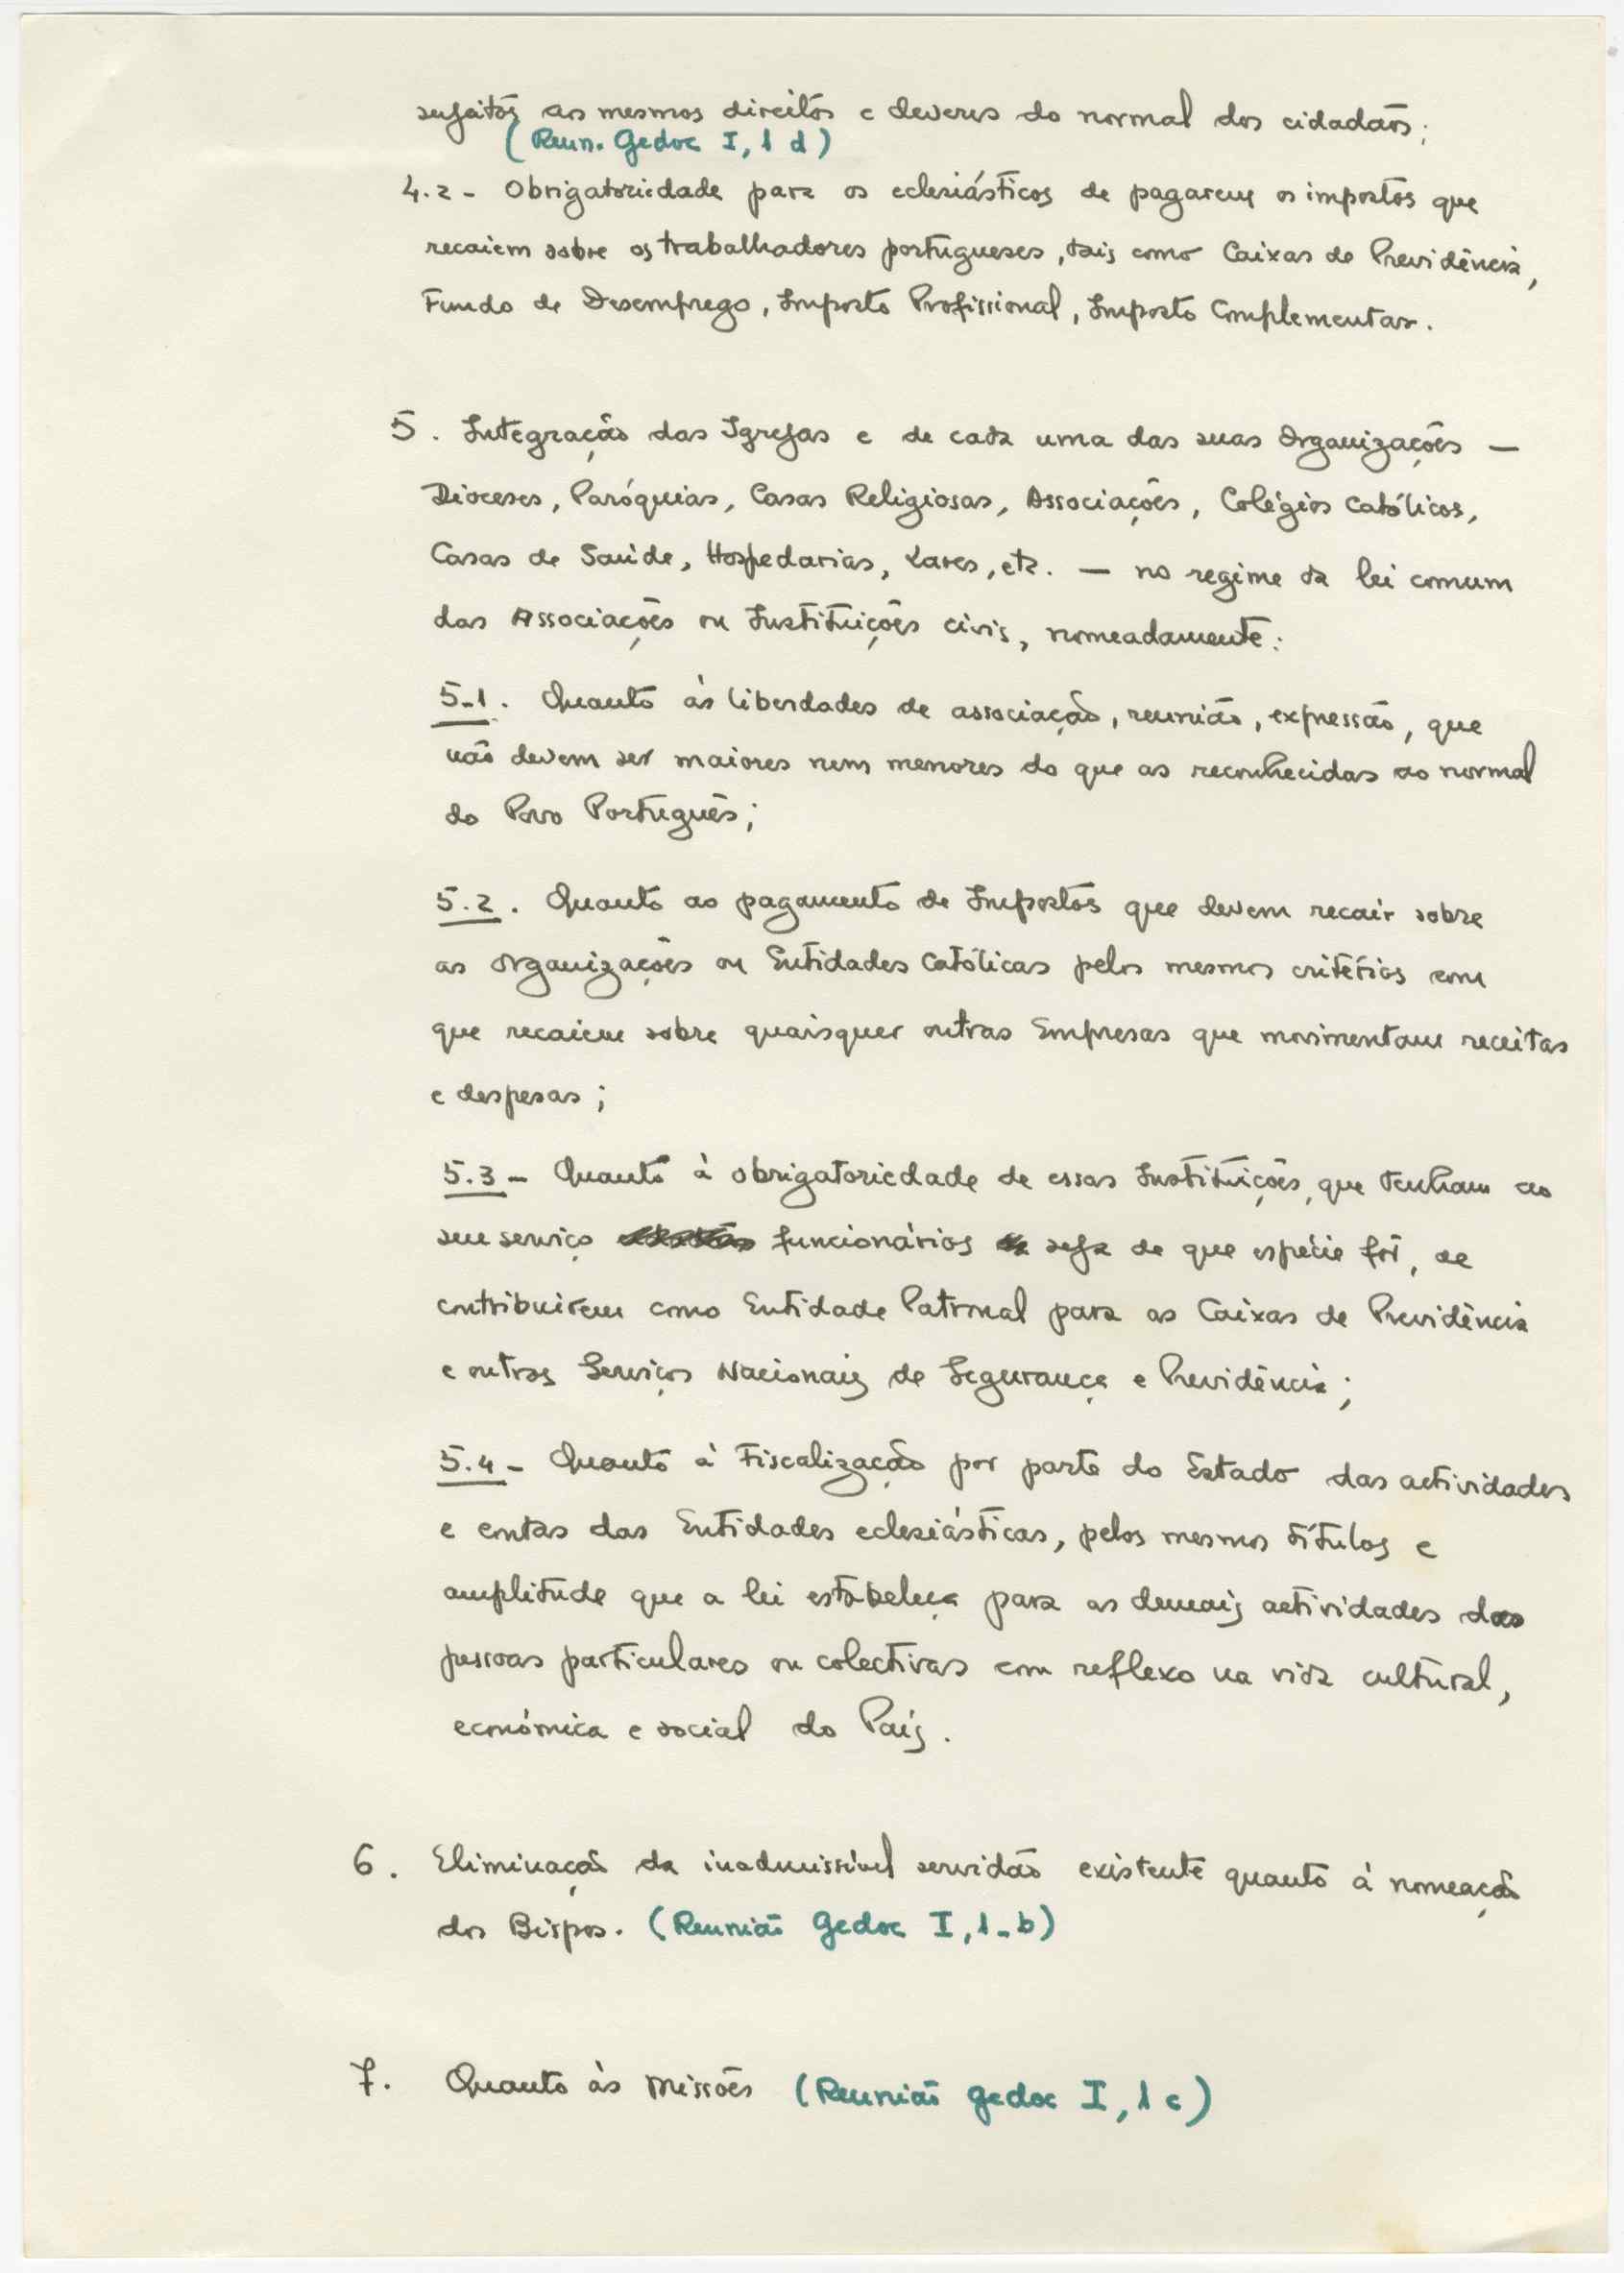 sujeitos aos mesmos direitos e deveres do normal dos cidadãos;
(Reun. Gedoc I, 1 d)
4.2 - Obrigatoriedade para os eclesiásticos de pagarem os impostos que
recaiem sobre os trabalhadores portugueses, tais como Caixas de Previdência,
Fundo de Desemprego, Imposto Profissional, Imposto Complementar.
5. Integração das Igrejas e de cada uma das suas Organizações —
Dioceses, Paróquias, Casas Religiosas, Associações, Colégios Católicos,
Casas de Saúde, Hospedarias, Lares, etc. — no regime da lei comum
das Associações ou Instituições civis, nomeadamente:
5.1. Quanto às liberdades de associação, reunião, expressão, que
não devem ser maiores nem menores do que as reconhecidas ao normal
do Povo Português;
5.2. Quanto ao pagamento de Impostos que devem recair sobre
as Organizações ou Entidades Católicas pelos mesmos critérios com
que recaiem sobre quaisquer outras Empresas que movimentam receitas
e despesas;
5.3 - Quanto à obrigatoriedade de essas Instituições, que tenham ao
seu serviço funcionários seja de que espécie for, de
contribuirem como Entidade Patronal para as Caixas de Previdência
e outros Serviços Nacionais de Segurança e Previdência;
5.4 - Quanto à Fiscalização por parte do Estado das actividades
e contas das Entidades eclesiásticas, pelos mesmos títulos e
amplitude que a lei estabeleça para as demais actividades das
pessoas particulares ou colectivas com reflexo na vida cultural,
económica e social do País.
6. Eliminação da inadmissível servidão existente quanto à nomeação
dos Bispos. (Reunião Gedoc I, 1-b)
7. Quanto às Missões (Reunião Gedoc I, 1 c)